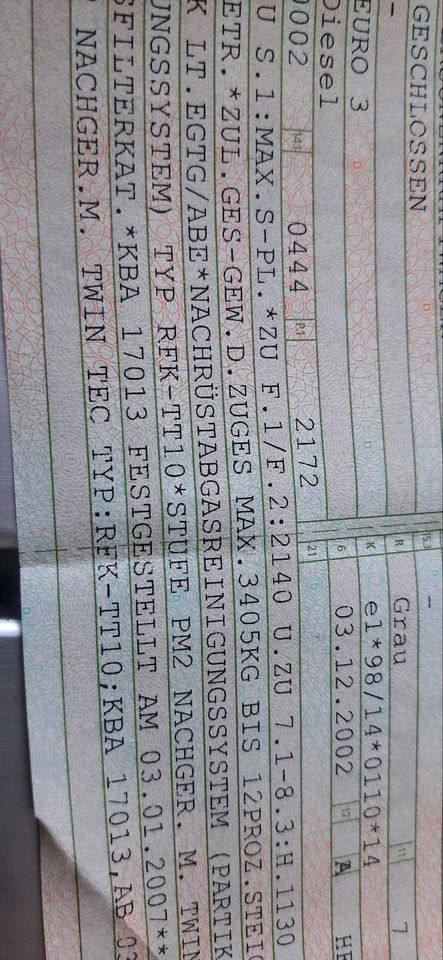 GESCHLOSSEN 15.3 -
- R Grau 11 7
EURO 3 K e1*98/14*0110*14
Diesel 6 03.12.2002 17 A HE
0002 14.1 0444 P.1 2172 21
U S.1:MAX.S-PL.*ZU F.1/F.2:2140 U.ZU 7.1-8.3:H.1130
ETR.*ZUL.GES-GEW.D.ZUGES MAX.3405KG BIS 12PROZ.STEIG
K LT.EGTG/ABE*NACHRÜSTABGASREINIGUNGSSYSTEM (PARTIK
UNGSSYSTEM) TYP RFK-TT10*STUFE PM2 NACHGER. M. TWIN
SFILTERKAT.*KBA 17013 FESTGESTELLT AM 03.01.2007**
NACHGER.M. TWIN TEC TYP:RFK-TT10;KBA 17013,AB 03